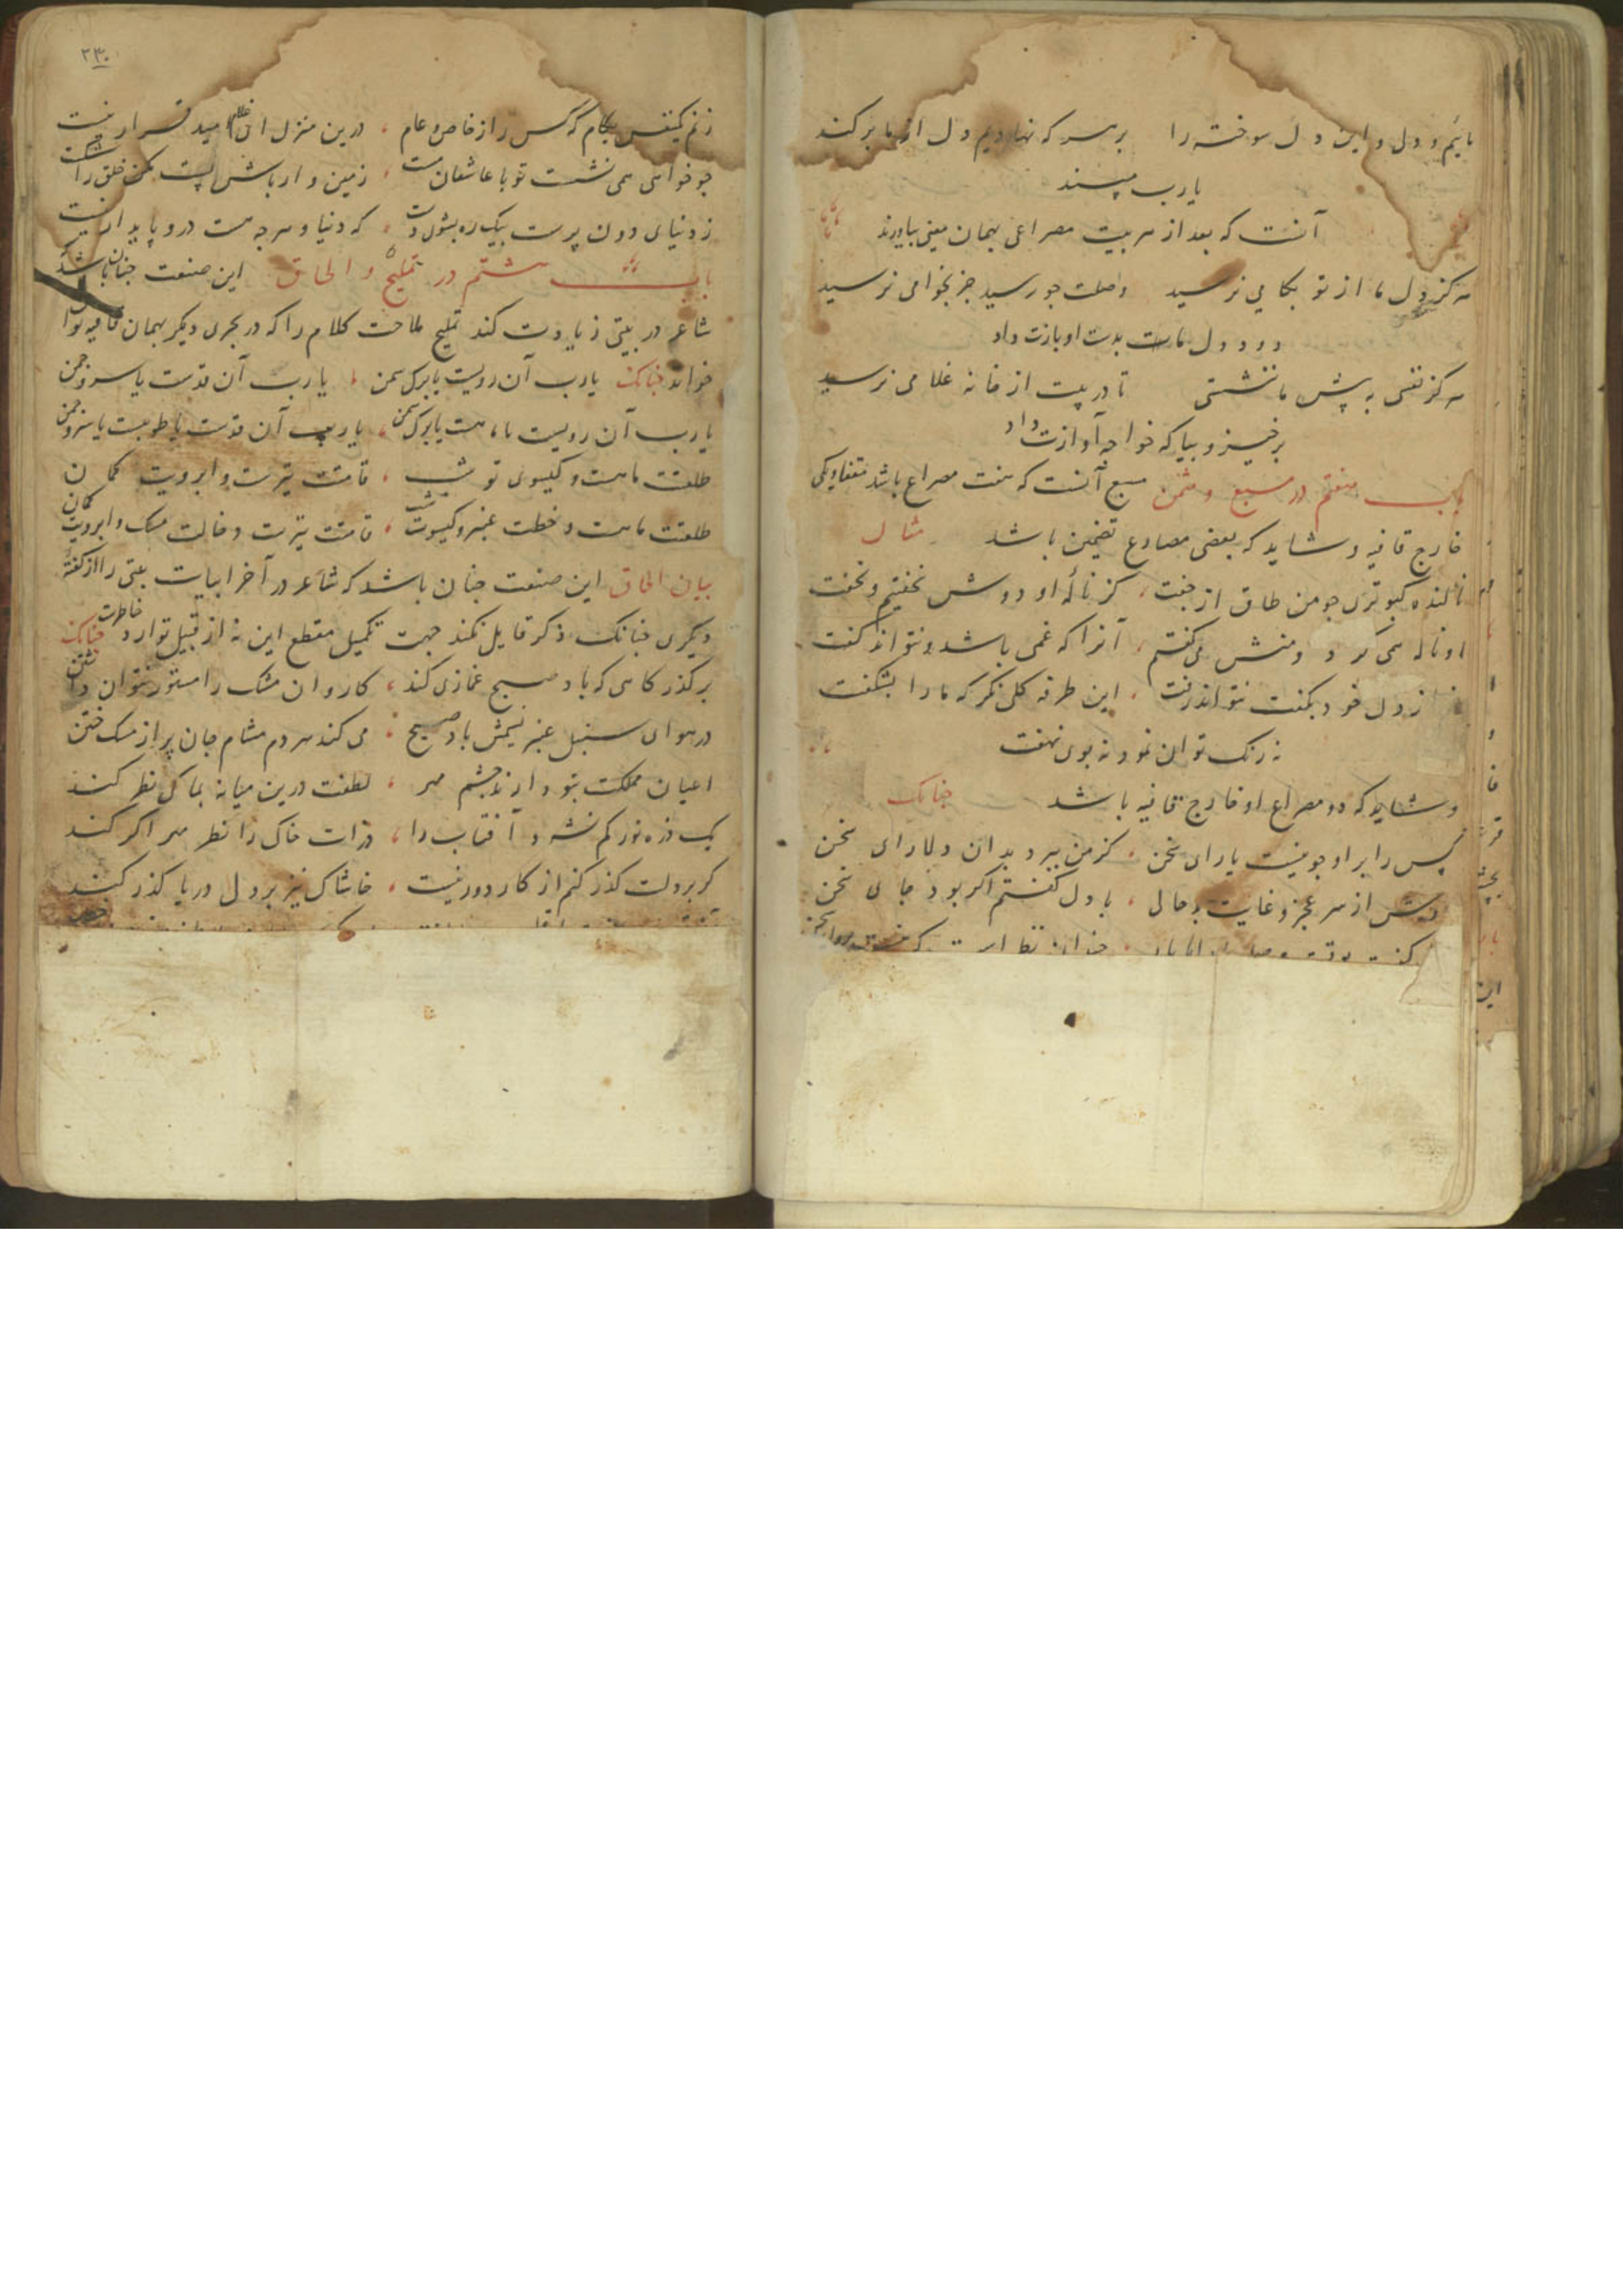 مائیم و دل و این دل سوخته را بر سر که نهادیم دل از ما بر کند
یارب مپسند
آنست که بعد از هر بیت مصراعی بهمان معنی بیاورند
هرگز دل ما از تو بکامی نرسید وصلت جو رسید جز بخوامی نرسید
درد دل ماست بدست او بازت داد
هرگز نفسی به پیش ما ننشستی تا در پیت از خانه غلامی نرسید
برخیز و بیا که خواجه آوازت داد
باب هفتم در مسبع و مثمن مسبع آنست که هفت مصراع باشد
خارج قافیه و شاید که بعضی مصارع تضمین باشد مثال
نالنده کبوتری جو من طاق از جفت کز نالهٔ او دوش نخفتیم و نخفت
او ناله همی کرد و منش می کفتم آنرا که غمی باشد و نتواند کفت
از دل خود بکفت نتواند رفت این طرفه کلی نکر که ما را بشکفت
نه رنک توان نمود نه بوی نهفت
و شاید که دو مصراع او خارج قافیه باشد جنانک
کس را بر او جو نیست یارای سخن کز من ببرد بدان دلارای سخن
دوش از سر عجز و غایت بد حالی با دل کفتم اکر بود جای سخن
۲۳۰
زنم یکنفس بکام کس را ز خاص و عام درین منزل ای غلام امید قرار نیست
جو خواهی همی نشست تو با عاشقان مست زمین وار باش پست مکن خلق را شکست
ز دنیای دون پرست بیک ره بشوی دست که دنیا و هرجه هست درو پایدار نیست
باب هشتم در تملیح و الحاق این صنعت جنان باشد که
شاعر در بیتی زیادت کند تملیح ملاحت کلام را که در بحری دیکر بهمان قافیه توان
خواند جنانک یارب آن رویست یا برک سمن یارب آن قدست یا سرو چمن
یارب آن رویست یا ماهست یا برک سمن یارب آن قدست یا طوبیست یا سرو چمن
طلعتت ماهست و کیسوی تو شب قامتت تیرست و ابرویت کمان
طلعتت ماهست و خطت عنبر و کیسوت شب قامتت تیرست و خالت مسک و ابرویت کمان
بیان الحاق این صنعت جنان باشد که شاعر در آخر ابیات بیتی را از کفتهٔ
دیکری جنانک ذکر قایل نکند جهت تکمیل مقطع این نه از قبیل توارد خاطرست جنانک
بر کذرکاهی که باد صبح غمازی کند کاروان مشک را مستور نتوان داشتن
در هوای سنبل عنبر نسیمش باد صبح می کند هر دم مشام جان پر از مسک ختن
اعیان مملکت بتو دارند چشم مهر لطفت درین میانه بما کی نظر کند
یک ذره نور کم نشود آفتاب را ذرات خاک را نظر مهر اکر کند
کر بر دلت کذر کنم از کار دور نیست خاشاک نیز بر دل دریا کذر کند